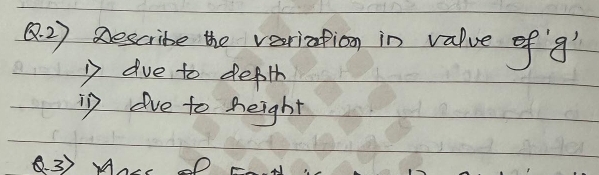 Q.2) Describe the variation in value of 'g'
i) due to depth
ii) due to height
Q.3) Mass of Earth is